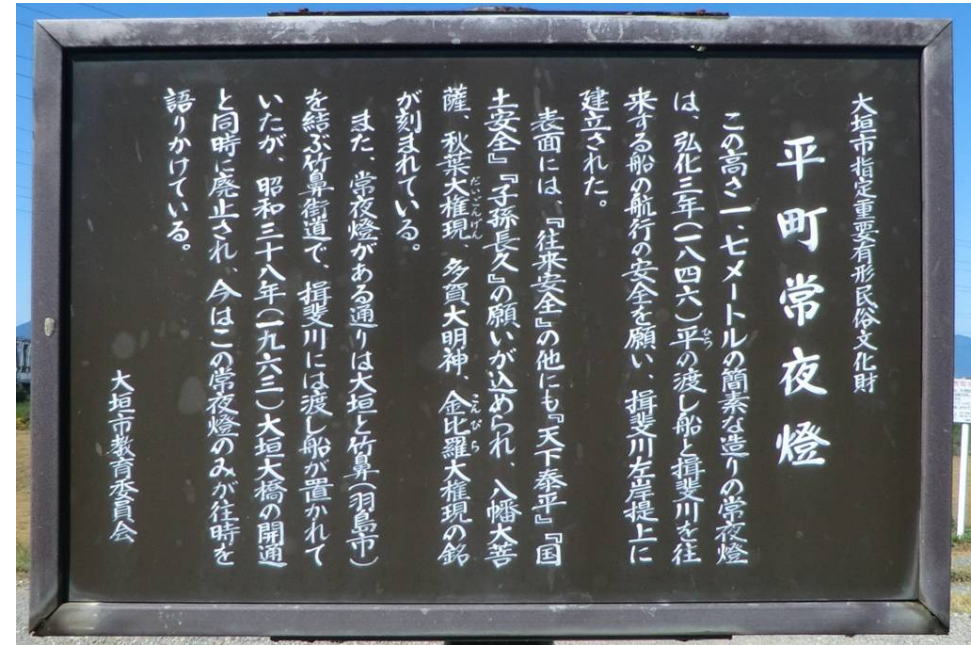 大垣市指定重要有形民俗文化財
平町常夜燈
この高さ一、七メートルの簡素な造りの常夜燈
は、弘化三年(一八四六)平の渡し船と揖斐川を往
来する船の航行の安全を願い、揖斐川左岸提上に
建立された。
表面には、『往来安全』の他にも『天下泰平』『国
土安全』『子孫長久』の願いが込められ、八幡大菩
薩、秋葉大権現、多賀大明神、金比羅大権現の銘
が刻まれている。
また、常夜燈がある通りは大垣と竹鼻(羽島市)
を結ぶ竹鼻街道で、揖斐川には渡し船が置かれて
いたが、昭和三十八年(一九六三)大垣大橋の開通
と同時に廃止され、今はこの常夜燈のみが往時を
語りかけている。
大垣市教育委員会